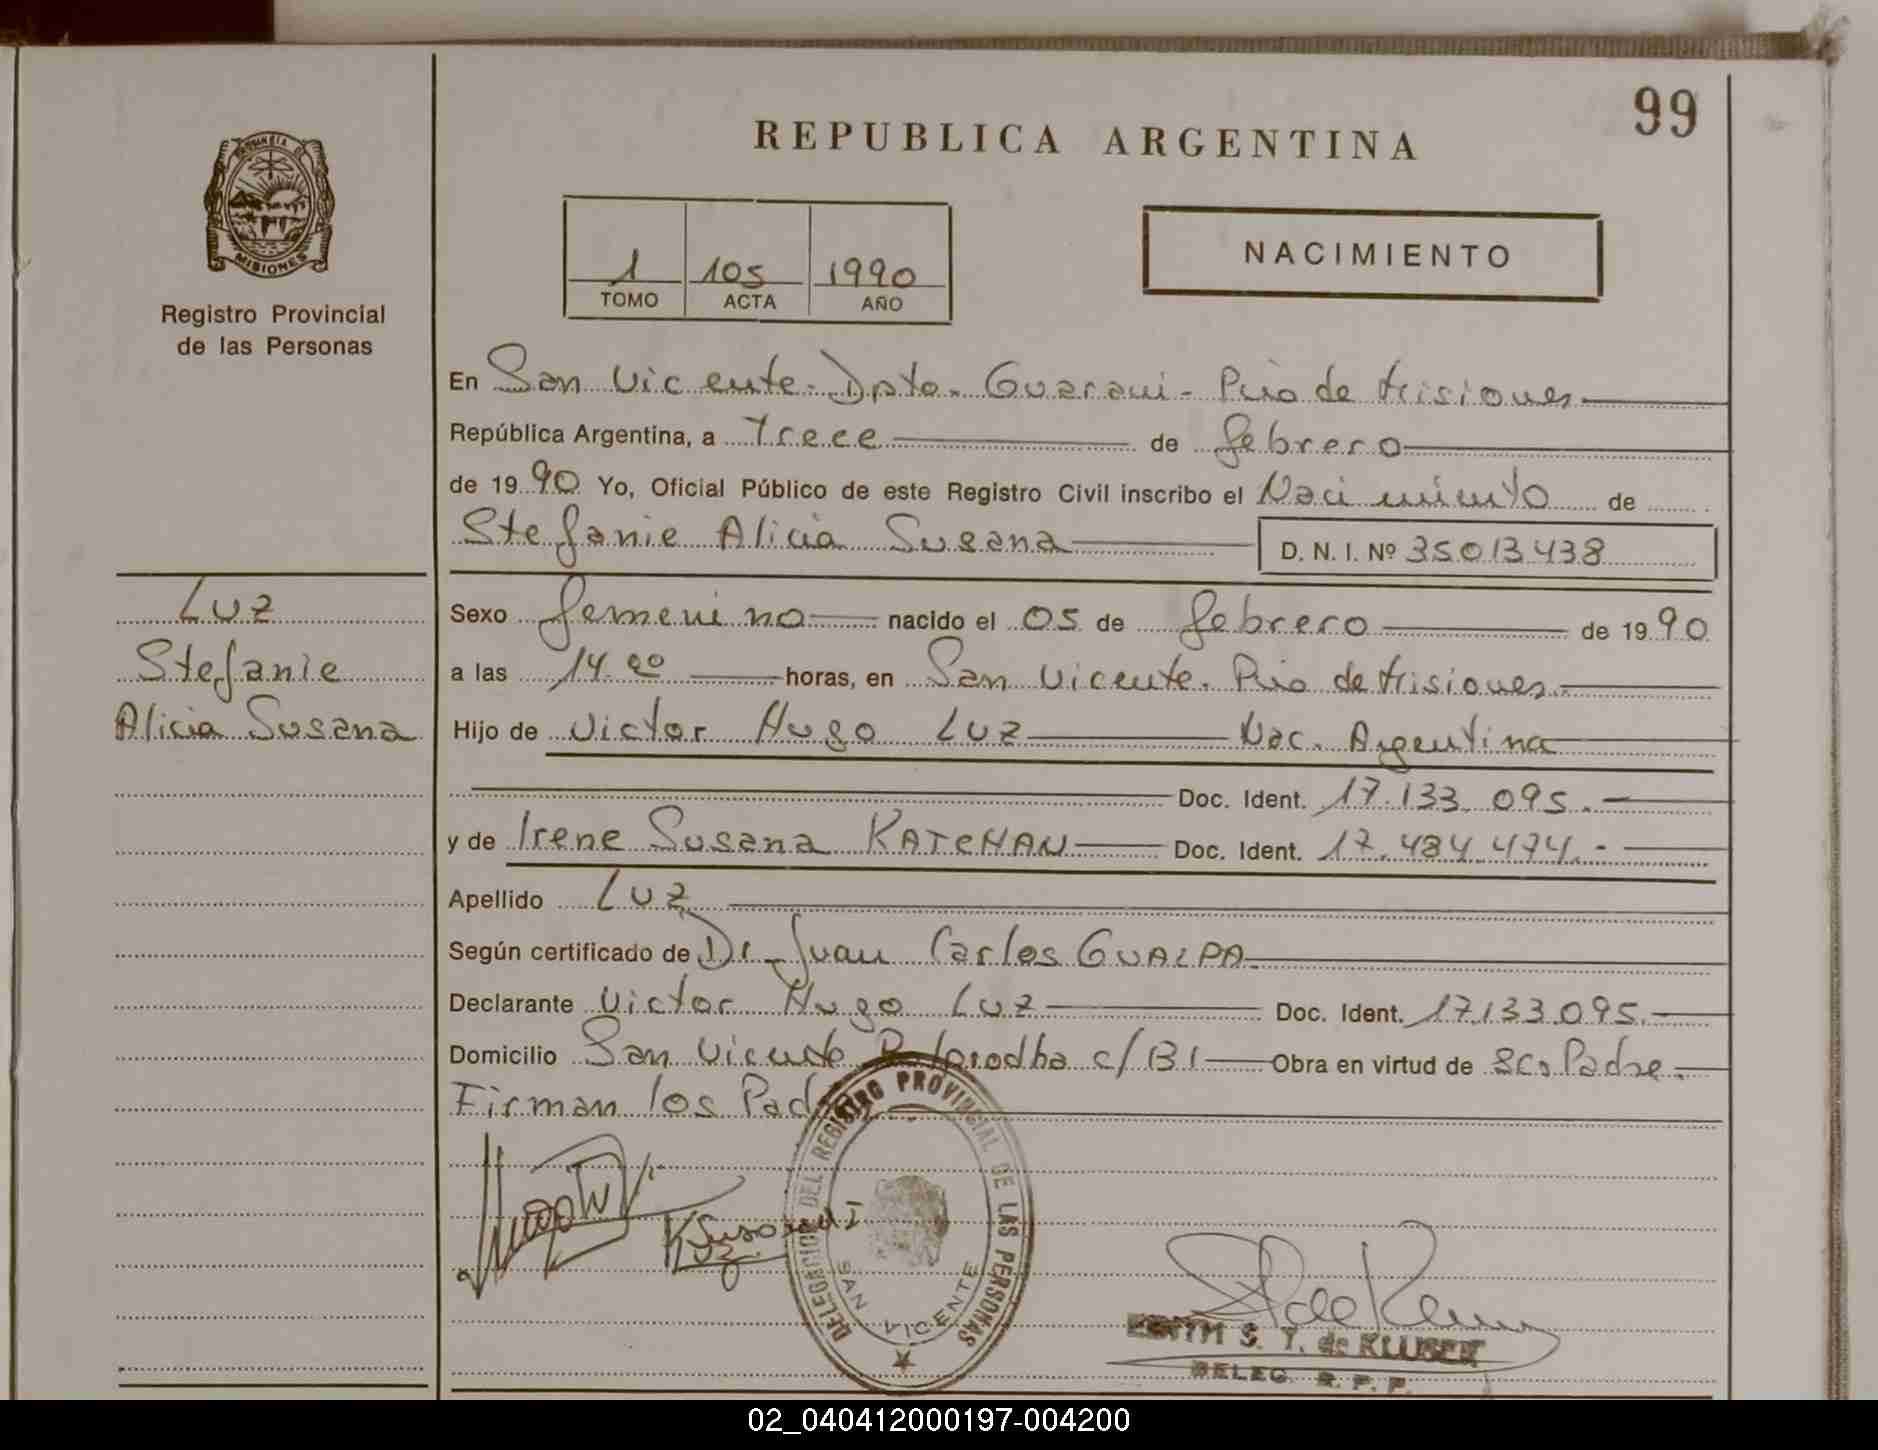 99
REPUBLICA ARGENTINA
PROVINCIA DE
MISIONES
Registro Provincial
de las Personas
1 105 1990
TOMO ACTA AÑO
NACIMIENTO
En San Vicente. Dpto. Guarani - Pcia de Misiones
República Argentina, a Trece de febrero
de 1990 Yo, Oficial Público de este Registro Civil inscribo el Nacimiento de
Stefanie Alicia Susana D. N. I. Nº 35013438
Luz
Stefanie
Alicia Susana
Sexo femenino nacido el 05 de febrero de 1990
a las 14.00 horas, en San Vicente. Pcia de Misiones.
Hijo de Victor Hugo Luz Nac. Argentina
Doc. Ident. 17.133.095.
y de Irene Susana KATCHAN Doc. Ident. 17.484.474.-
Apellido Luz
Según certificado de Dr. Juan Carlos GUALPA.
Declarante Victor Hugo Luz Doc. Ident. 17.133.095.
Domicilio San Vicente c/B1 Obra en virtud de sco Padre.
Firman los
DELEGACION DEL REGISTRO PROVINCIAL DE LAS PERSONAS
SAN VICENTE
EDITH S. T. de KLUSER
DELEG. R. P. P.
02_040412000197-004200